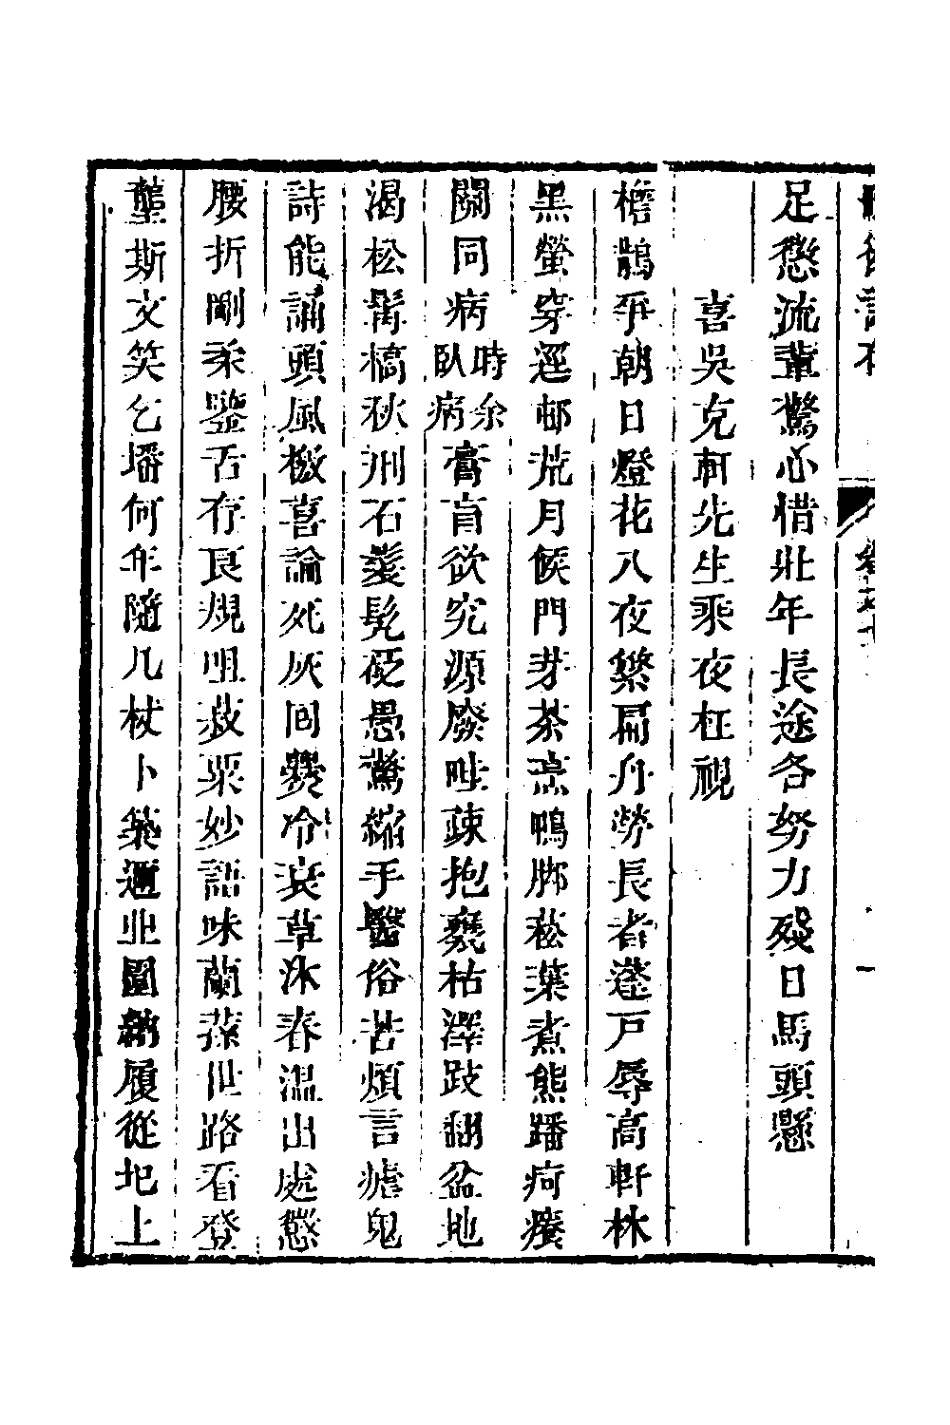 足懲流輩驚心惜壯年長途各努力殘日馬頭懸
喜吳克軒先生乘夜枉視
檐鵲爭朝日燈花入夜繁扁舟勞長者蓬戸辱高軒林
黑螢穿逕邨荒月候門芽茶烹鴨脚菘葉煮熊蹯痾癢
關同病時余臥病膏肓欲究源廢畦疎抱甕枯澤跂翻盆地
渴松髯槁秋州石髮髡砭愚驚縮手醫俗苦煩言瘧鬼
詩能誦頭風檄喜論死灰囘爨冷衰草沐春温出處慙
腰折剛柔鑒舌存良規明菽粟妙語味蘭蓀世路看登
壟斯文笑乞墦何年隨几杖卜築邇丘園納履從圯上